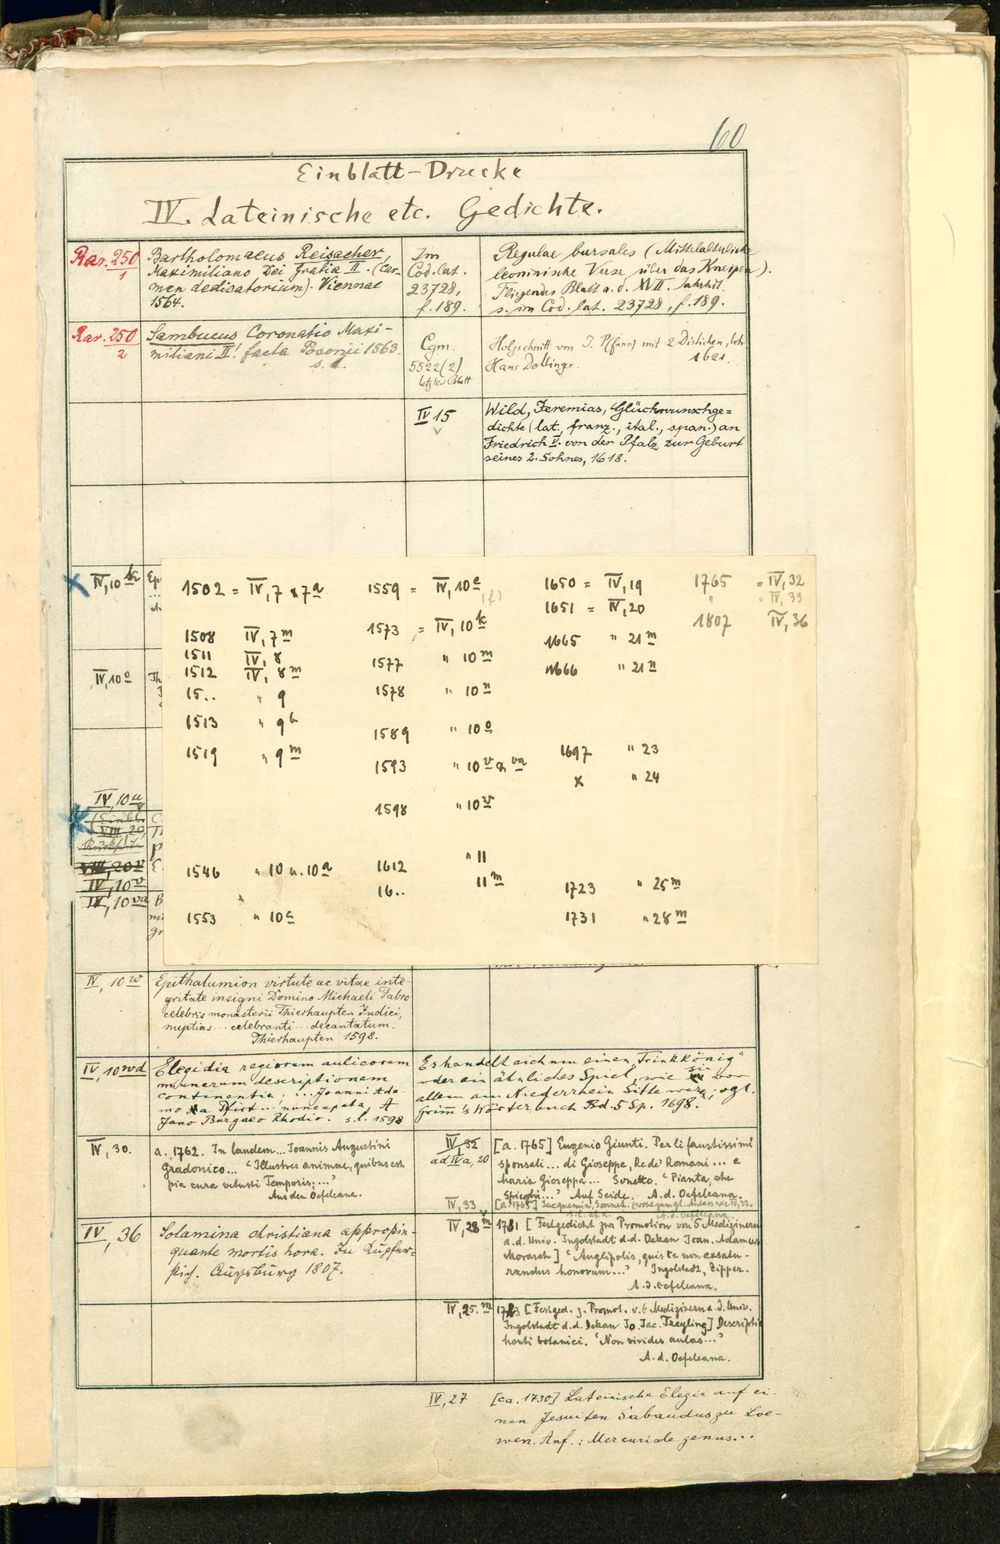 60
Einblatt-Drucke
IV. Lateinische etc. Gedichte.
Rar. 250
1
Bartholomaeus Reisacher,
Maximiliano Dei gratia II. (Car-
men dedicatorium). Viennae
1564.
Im
Cod. lat.
23728,
f. 189.
Regulae bursales (Mittelalterliche
leoninische Verse über das Kneipen).
Fliegendes Blatt a. d. XVII. Jahrhdt.
s. im Cod. lat. 23728, f. 189.
Rar. 250
2
Sambucus, Coronatio Maxi-
miliani II. facta Posonii 1563.
s. l.
Cgm
5522(2)
letztes Blatt
Holzschnitt von J. Pfann mit 2 Distichen,
Hans Dollinger. 1621.
IV 15
Wild, Jeremias, Glückwunschge=
dichte (lat., franz., ital., span.) an
Friedrich V. von der Pfalz zur Geburt
seines 2. Sohnes, 1618.
IV,10
IV,10o
IV,10u
(Einbl.
VIII, 20
VIII, 20v
IV, 10v
IV, 10va
1502 = IV,7 & 7a
1508 IV, 7m
1511 IV, 8
1512 IV, 8m
15.. " 9
1513 " 9b
1519 " 9m
1546 " 10 u. 10a
1553 " 10c
1559 = IV, 10e (f)
1573 = IV, 10k
1577 " 10m
1578 " 10n
1589 " 10o
1593 " 10v & va
1598 " 10w
1612 " 11
16.. 11m
1650 = IV,19
1651 = IV,20
1665 " 21m
1666 " 21n
1697 " 23
x " 24
1723 " 25m
1731 " 28m
1765 = IV, 32
" = IV, 33
1807 IV, 36
IV, 10w
Epithalumion virtute ac vitae inte-
gritate insigni Domino Michaeli Fabro
celebris monasterii Thierhaupten Judici,
nuptias ... celebranti ... decantatum.
Thierhaupten 1598.
IV, 10wd
Elegidia regiorum aulicorum
munerum descriptionem
continentia; ... Joanni Ada-
mo a Pfirt ... nuncupata, A
Jano Burgaeo Rhodio. s. l. 1598
Es handelt sich um einen "Trinkkönig"
oder ein ähnliches Spiel, wie sie vor
allem am Niederrhein Sitte war, vgl.
Grimm's Wörterbuch Bd. 5 Sp. 1698.
IV, 30.
a. 1762. In laudem ... Joannis Augustini
Gradonico ... "Illustres animae, quibus est
pia cura vetusti Temporis; ..."
Aus den Oefeleana.
IV 32
ad IVa, 20
[a. 1765] Eugenio Giunti. Per li faustissimi
sponsali ... di Gioseppe, Re de' Romani ... e
Maria Gioseppa ... Sonetto. "Pianta, che
Auf Seide. A. d. Oefeleana.
IV, 33
[a. 1765]
IV, 36
Solamina christiana appropin-
quante mortis hora. In Kupfer-
stich. Augsburg 1807.
IV, 28m
1731 [Festgedicht zur Promotion von 5 Medizinern
a. d. Univ. Ingolstadt d. d. Dekan Joan. Adamus
Morasch] "Anglipolis, quis te non exsatu-
randus honorum ..." Ingolstadt, Zipper.
A. d. Oefeleana.
IV, 25.m
1723 [Festged. z. Promot. v. 6 Medizinern a. d. Univ.
Ingolstadt d. d. Dekan Jo. Jac. Treyling] Descriptio
horti botanici. "Non vivides aulas ..."
A. d. Oefeleana.
IV, 27
[ca. 1730] Lateinische Elegie auf ei-
nen Jesuiten Sabaudus zu Loe-
wen. Anf.: Mercuriale genus...